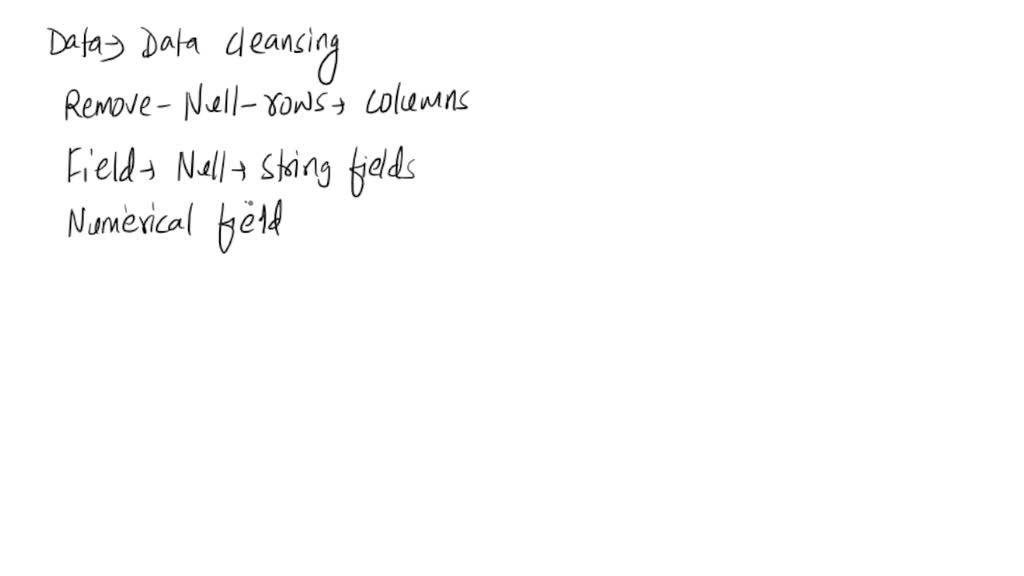 Data→ Data cleansing
Remove - Null - rows → columns
Field → Null → string fields
Numerical field